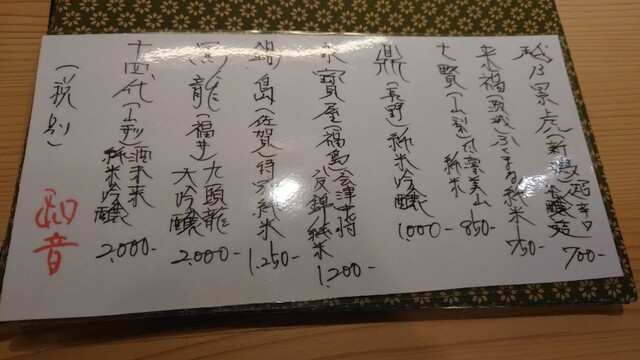 越乃景虎(新潟)超辛口
本醸造 700-
来福(茨城)ふくまる純米 750-
大賢(山梨)甘凛美山
純米 850-
鼎(長野)純米吟醸 1,000-
寶屋(福島)会津
八反錦純米 1,200-
鍋島(佐賀)特別純米 1,250-
黒龍(福井)九頭龍
大吟醸 2,000-
十四代(山形)酒未来
純米吟醸 2,000-
(税別)
和音